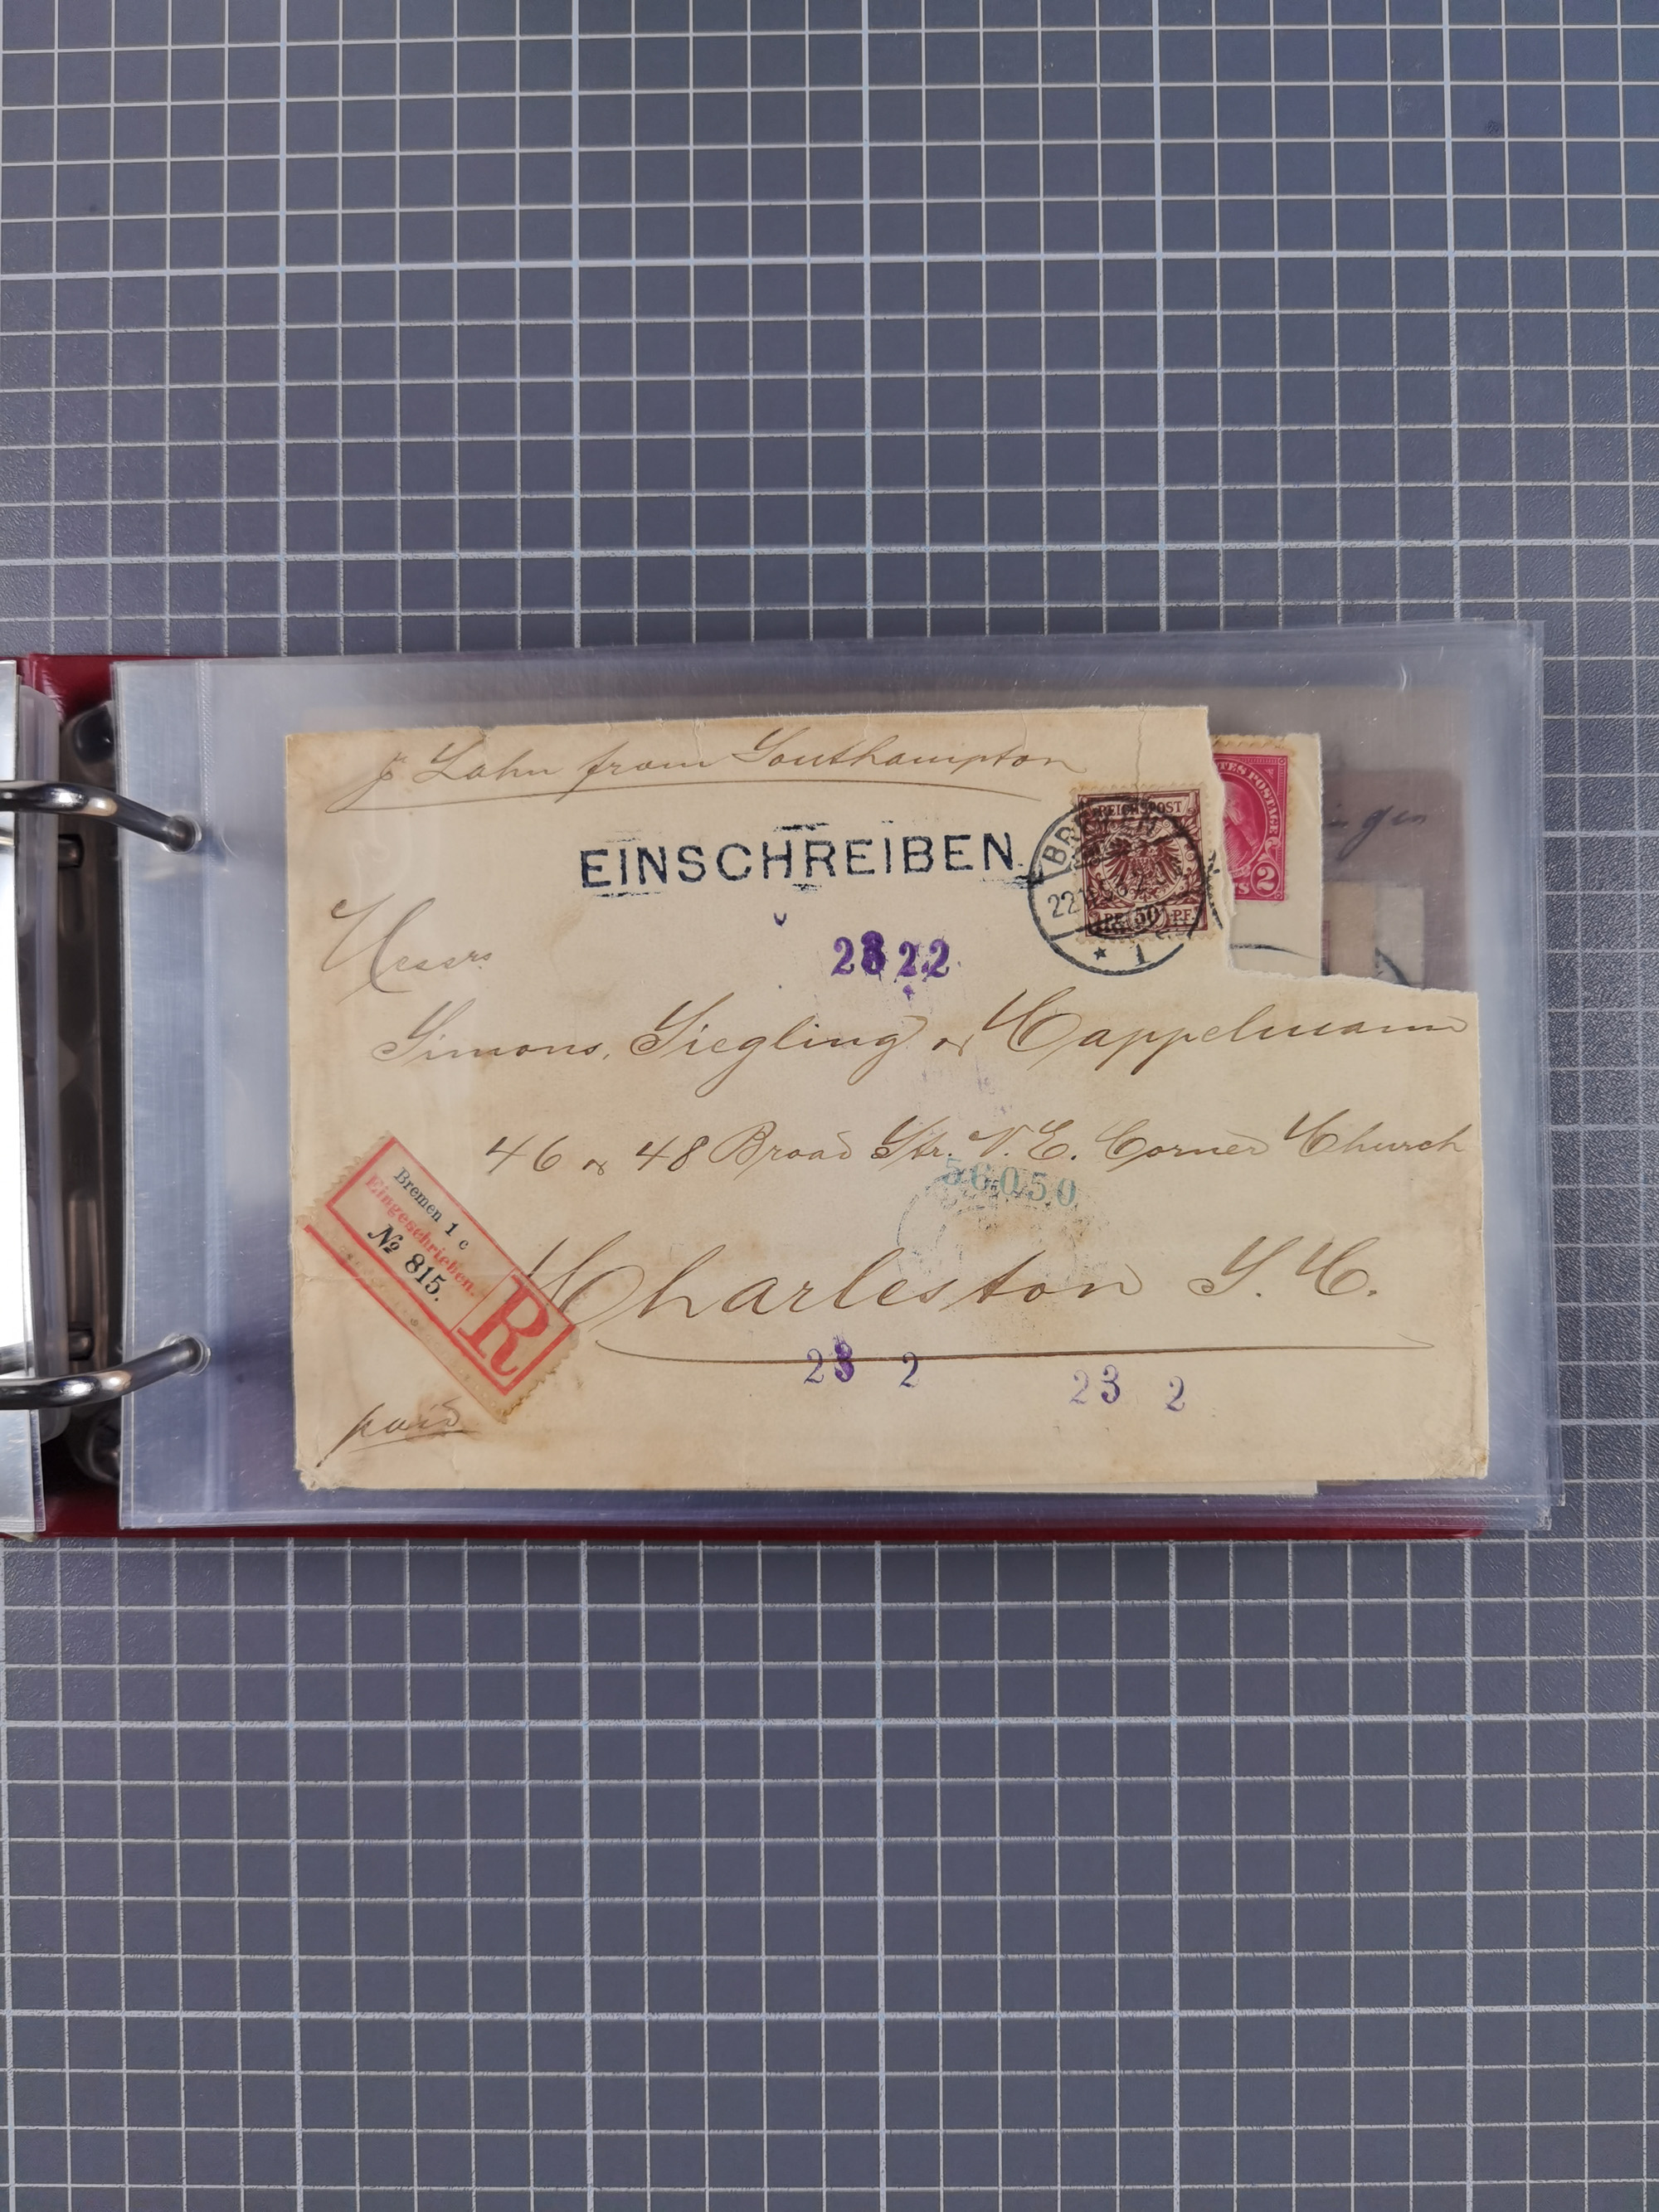 p Lahn from Southampton
REICHSPOST
PF. 50 PF.
BREMEN
22
* 1
TES POSTAGE
TS 2
EINSCHREIBEN
Messrs.
2322
Simons, Siegling & Cappelmann
46 & 48 Broad Str. N. E. Corner Church
56050
Charleston S. C.
Bremen 1 c
Eingeschrieben.
№ 815.
R
23 2
23 2
paid